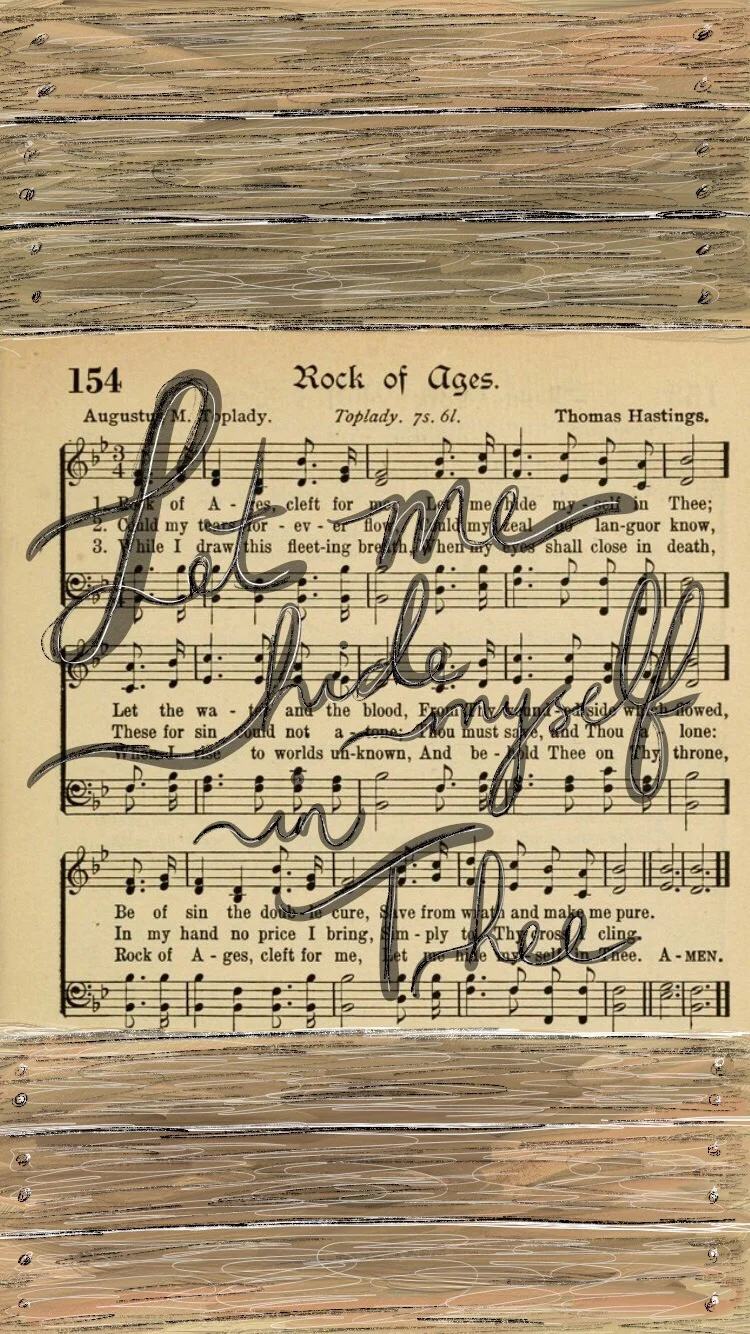 154 Rock of Ages.
Augustus M. Toplady. Toplady. 7s. 6l. Thomas Hastings.
1. Rock of A - ges, cleft for me, Let me hide my - self in Thee;
2. Could my tears for - ev - er flow, Could my zeal no lan-guor know,
3. While I draw this fleet-ing breath, When my eyes shall close in death,
Let me
hide
myself
in
Thee
Let the wa - ter and the blood, From Thy wound-ed side which flowed,
These for sin could not a - tone; Thou must save, and Thou a - lone:
When I rise to worlds un-known, And be - hold Thee on Thy throne,
Be of sin the doub - le cure, Save from wrath and make me pure.
In my hand no price I bring, Sim - ply to Thy cross I cling.
Rock of A - ges, cleft for me, Let me hide my - self in Thee. A - MEN.